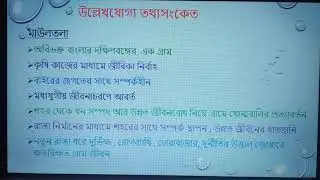 উল্লেখযোগ্য তথ্যসংকেত
মাউলতলা
অবিভক্ত বাংলার দক্ষিণবঙ্গের এক গ্রাম
কৃষি কাজের মাধ্যমে জীবিকা নির্বাহ
বাইরের জগতের সাথে সম্পর্কহীন
মধ্যযুগীয় জীবনাচরণে আবর্ত
শহর থেকে ধন সম্পদ আর উন্নত জীবনবোধ নিয়ে গ্রামে ঘোষালির প্রত্যাবর্তন
রাস্তা নির্মানের মাধ্যমে শহরের সাথে সম্পর্ক স্থাপন , উন্নত জীবনের হাতছানি
নতুন রাস্তা ধরে দুর্ভিক্ষ , রোগব্যাধি , চোরাবাজার, দুর্নীতির উত্তাল জোয়ারে
ক্ষতবিক্ষত গ্রাম জীবন